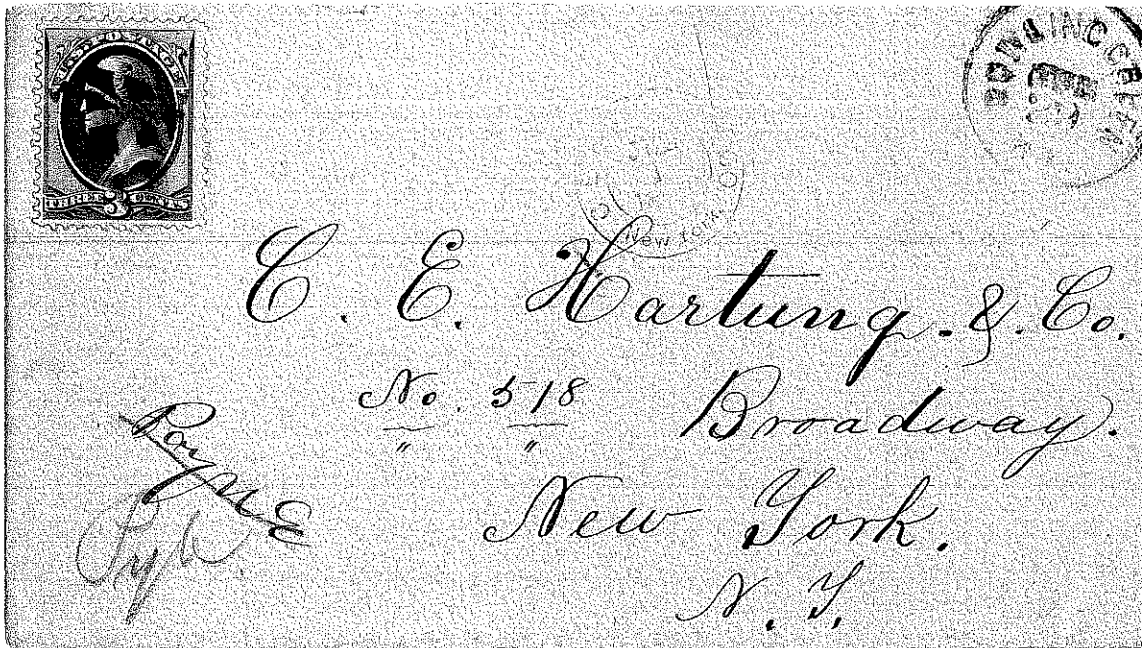 U.S. POSTAGE
THREE 3 CENTS
New York
C. E. Hartung. &. Co.
No. 518 Broadway.
New York.
N. Y.